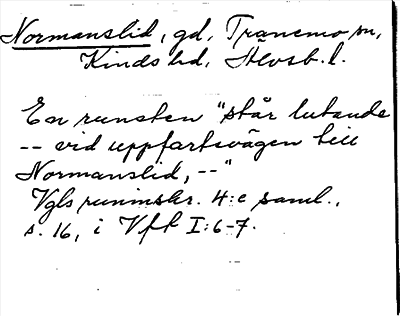 Normanslid, gd, Tranemo sn,
Kinds hd, Älvsb. l.
En runsten "står lutande
-- vid uppfartsvägen till
Normanslid, --"
Vgls runinskr. 4:e saml.,
s. 16, i Vfk I:6-7.